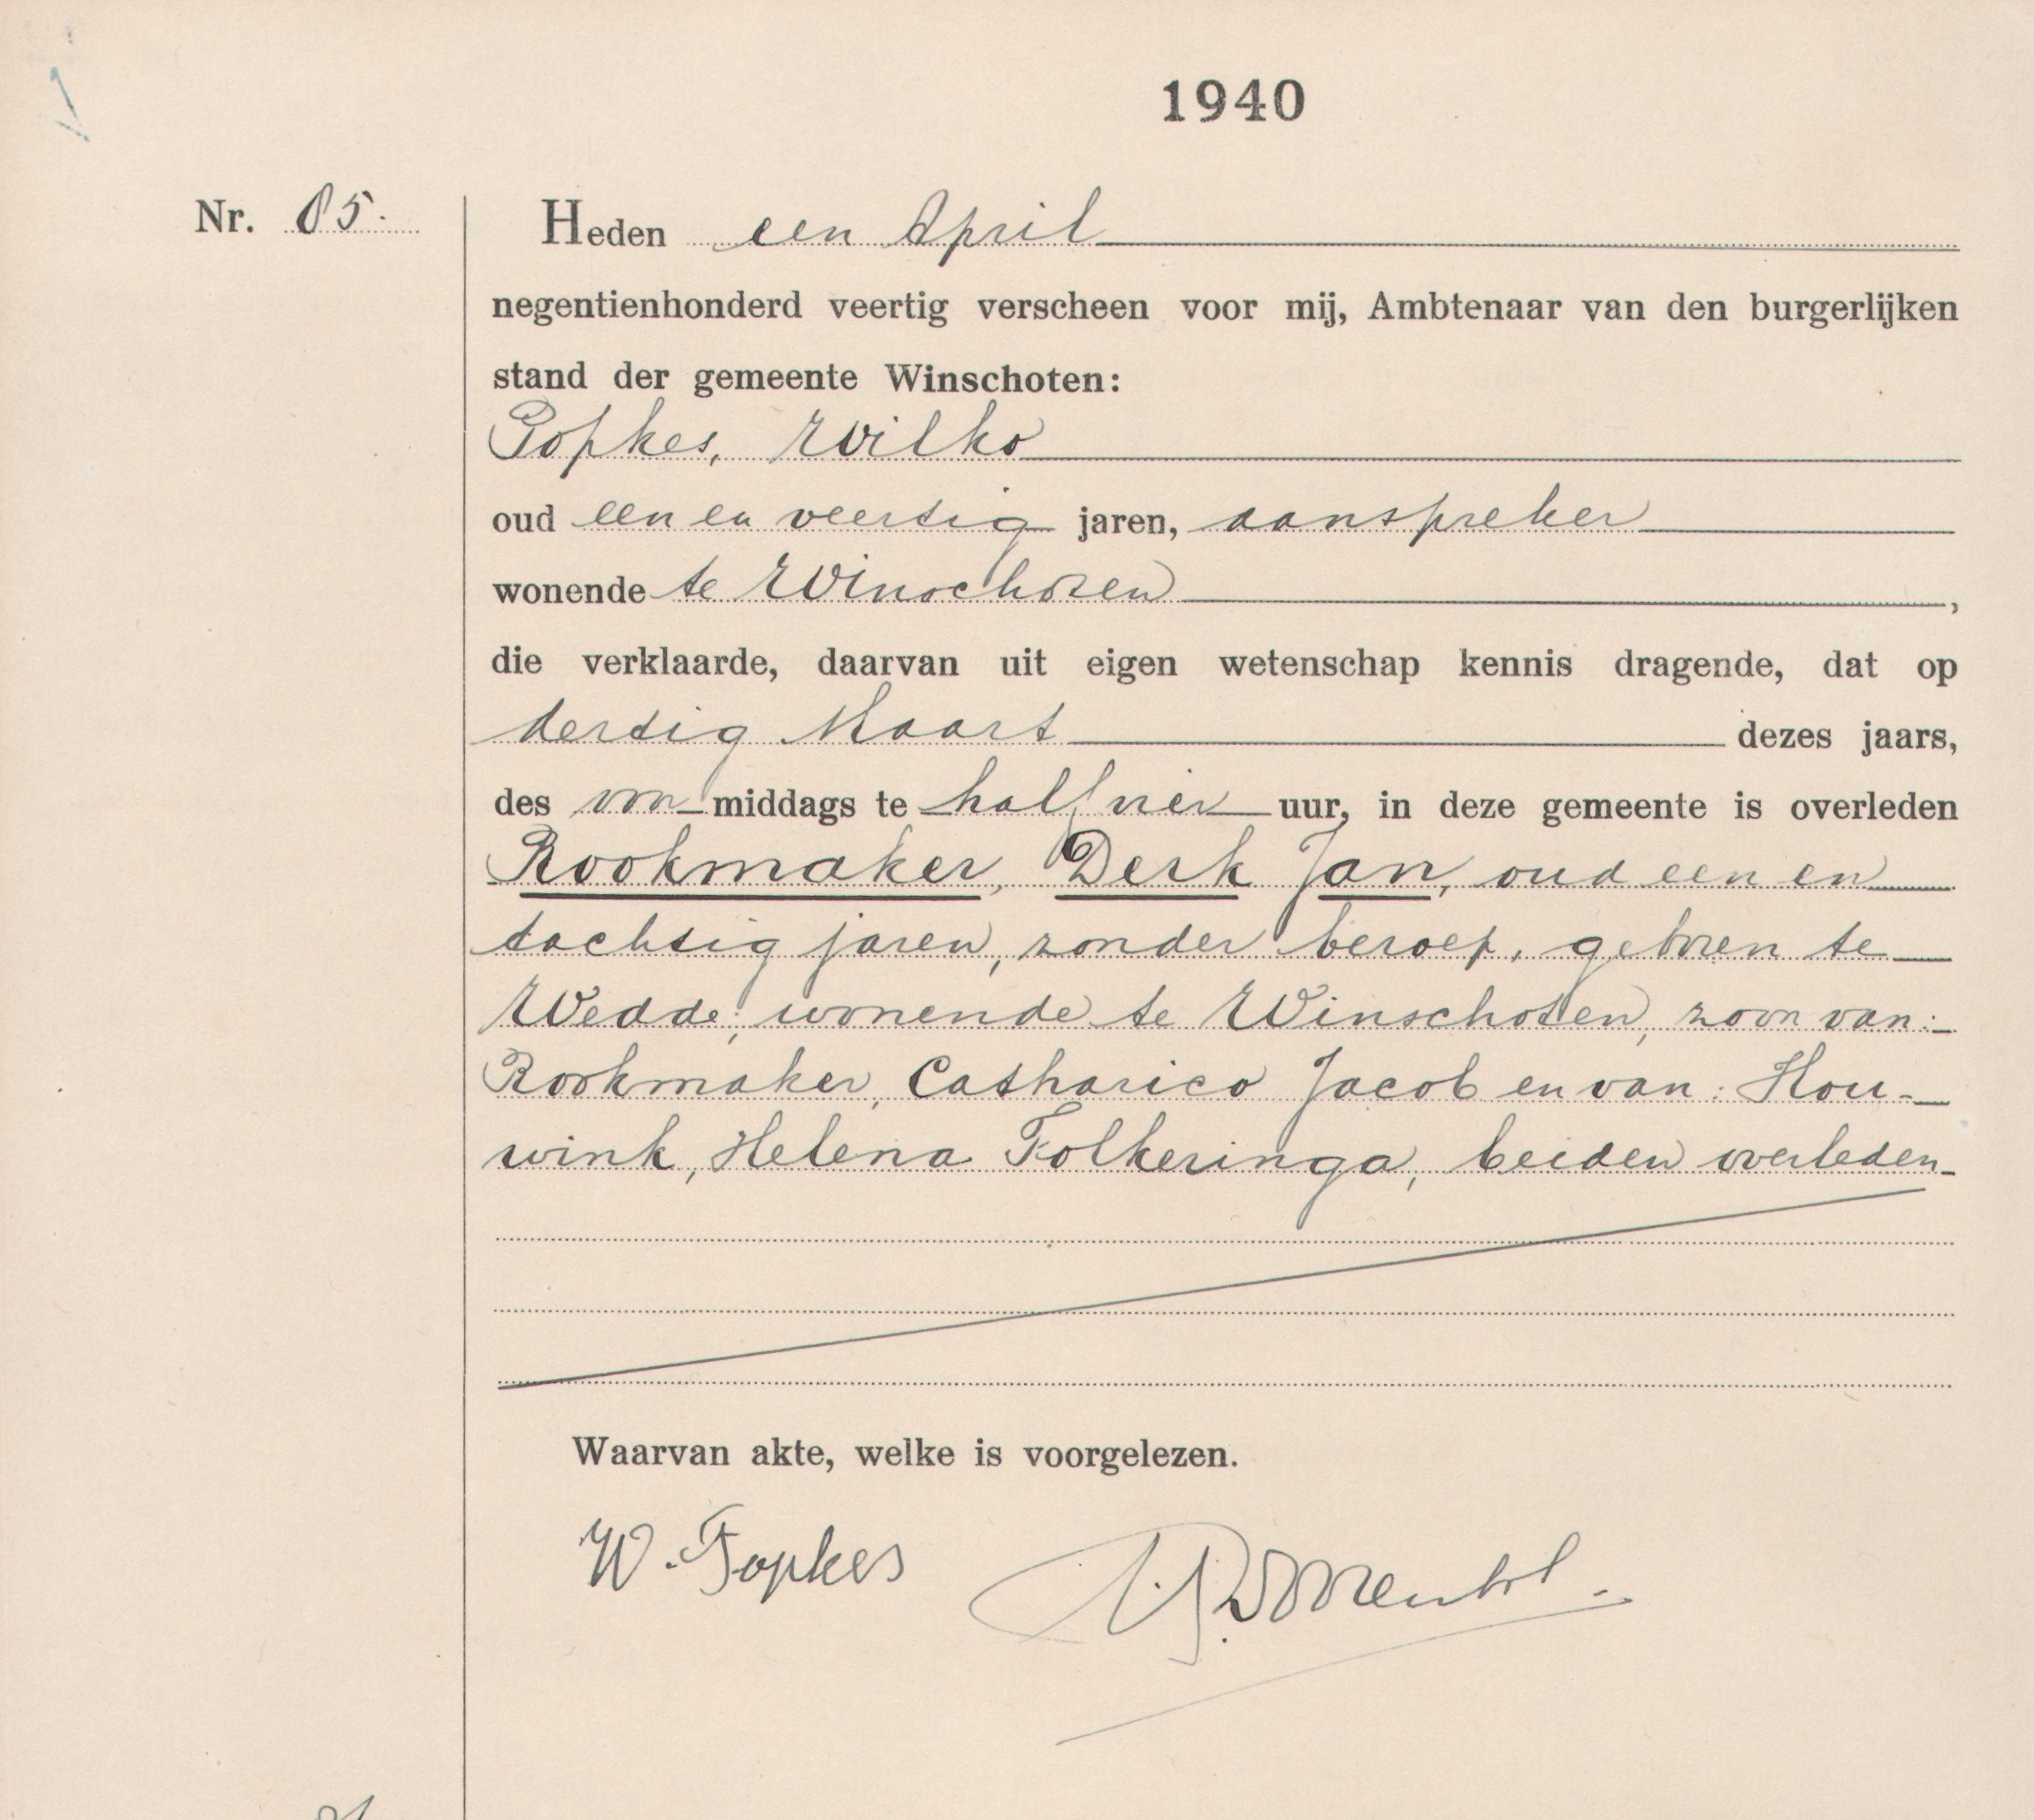 1940
Nr. 85.
Heden een April
negentienhonderd veertig verscheen voor mij, Ambtenaar van den burgerlijken
stand der gemeente Winschoten:
Popkes, Wilko
oud een en veertig jaren, aanspreker
wonende te Winschoten,
die verklaarde, daarvan uit eigen wetenschap kennis dragende, dat op
dertig Maart dezes jaars,
des voormiddags te half vier uur, in deze gemeente is overleden
Rookmaker, Derk Jan, oud een en
tachtig jaren, zonder beroep, geboren te
Wedde, wonende te Winschoten, zoon van:
Rookmaker, Catharico Jacob en van: Hou-
wink, Helena Folkeringa, beiden overleden
Waarvan akte, welke is voorgelezen.
W. Popkes